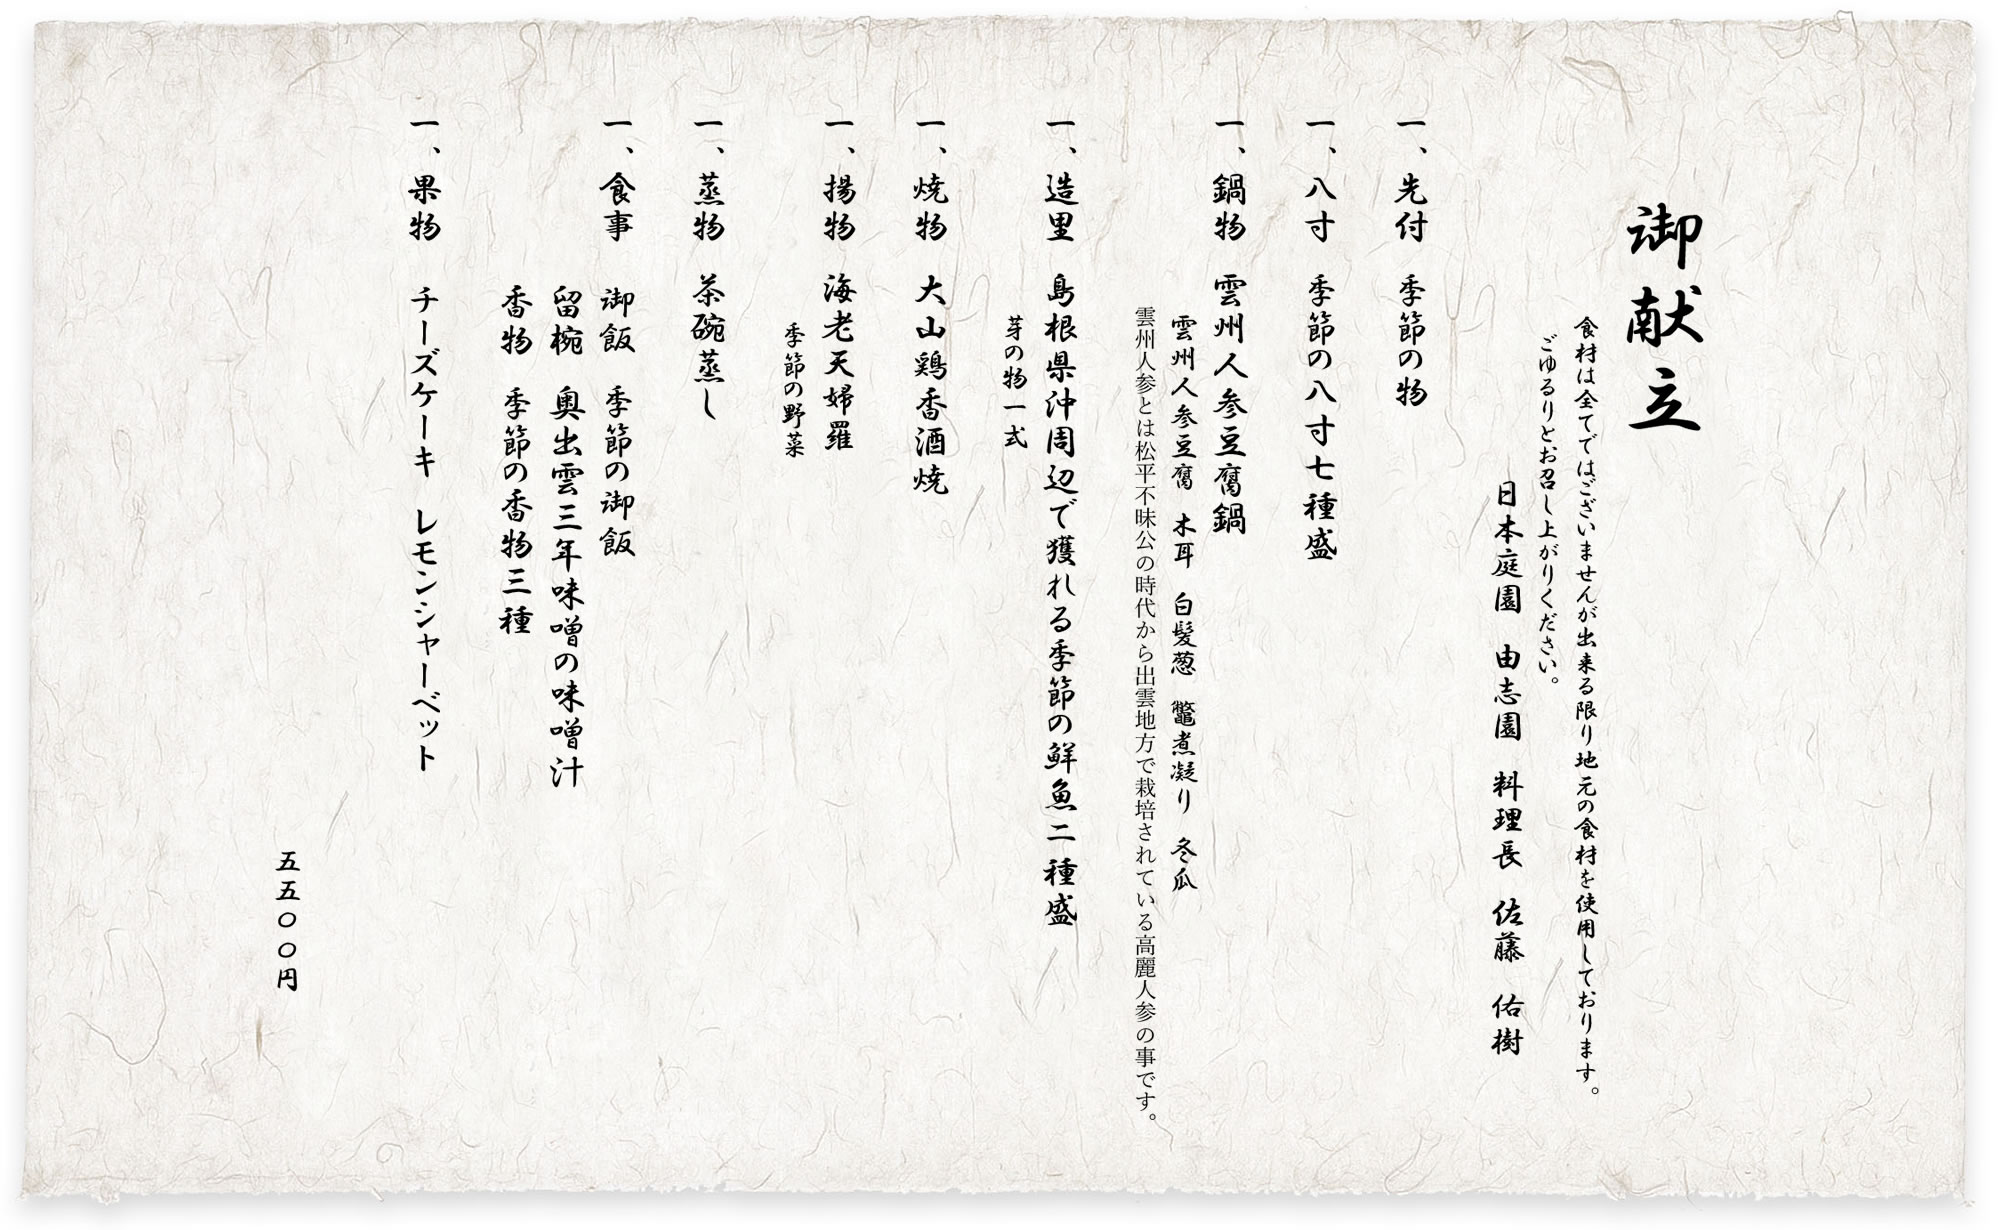 御献立
食材は全てではございませんが出来る限り地元の食材を使用しております。
ごゆるりとお召し上がりください。
日本庭園　由志園　料理長　佐藤　佑樹
一、先付　季節の物
一、八寸　季節の八寸七種盛
一、鍋物　雲州人参豆腐鍋
雲州人参豆腐　木耳　白髪葱　鼈煮凝り　冬瓜
雲州人参とは松平不昧公の時代から出雲地方で栽培されている高麗人参の事です。
一、造里　島根県沖周辺で獲れる季節の鮮魚二種盛
芽の物一式
一、焼物　大山鶏香酒焼
一、揚物　海老天婦羅
季節の野菜
一、蒸物　茶碗蒸し
一、食事　御飯　季節の御飯
留椀　奥出雲三年味噌の味噌汁
香物　季節の香物三種
一、果物　チーズケーキ　レモンシャーベット
五五〇〇円